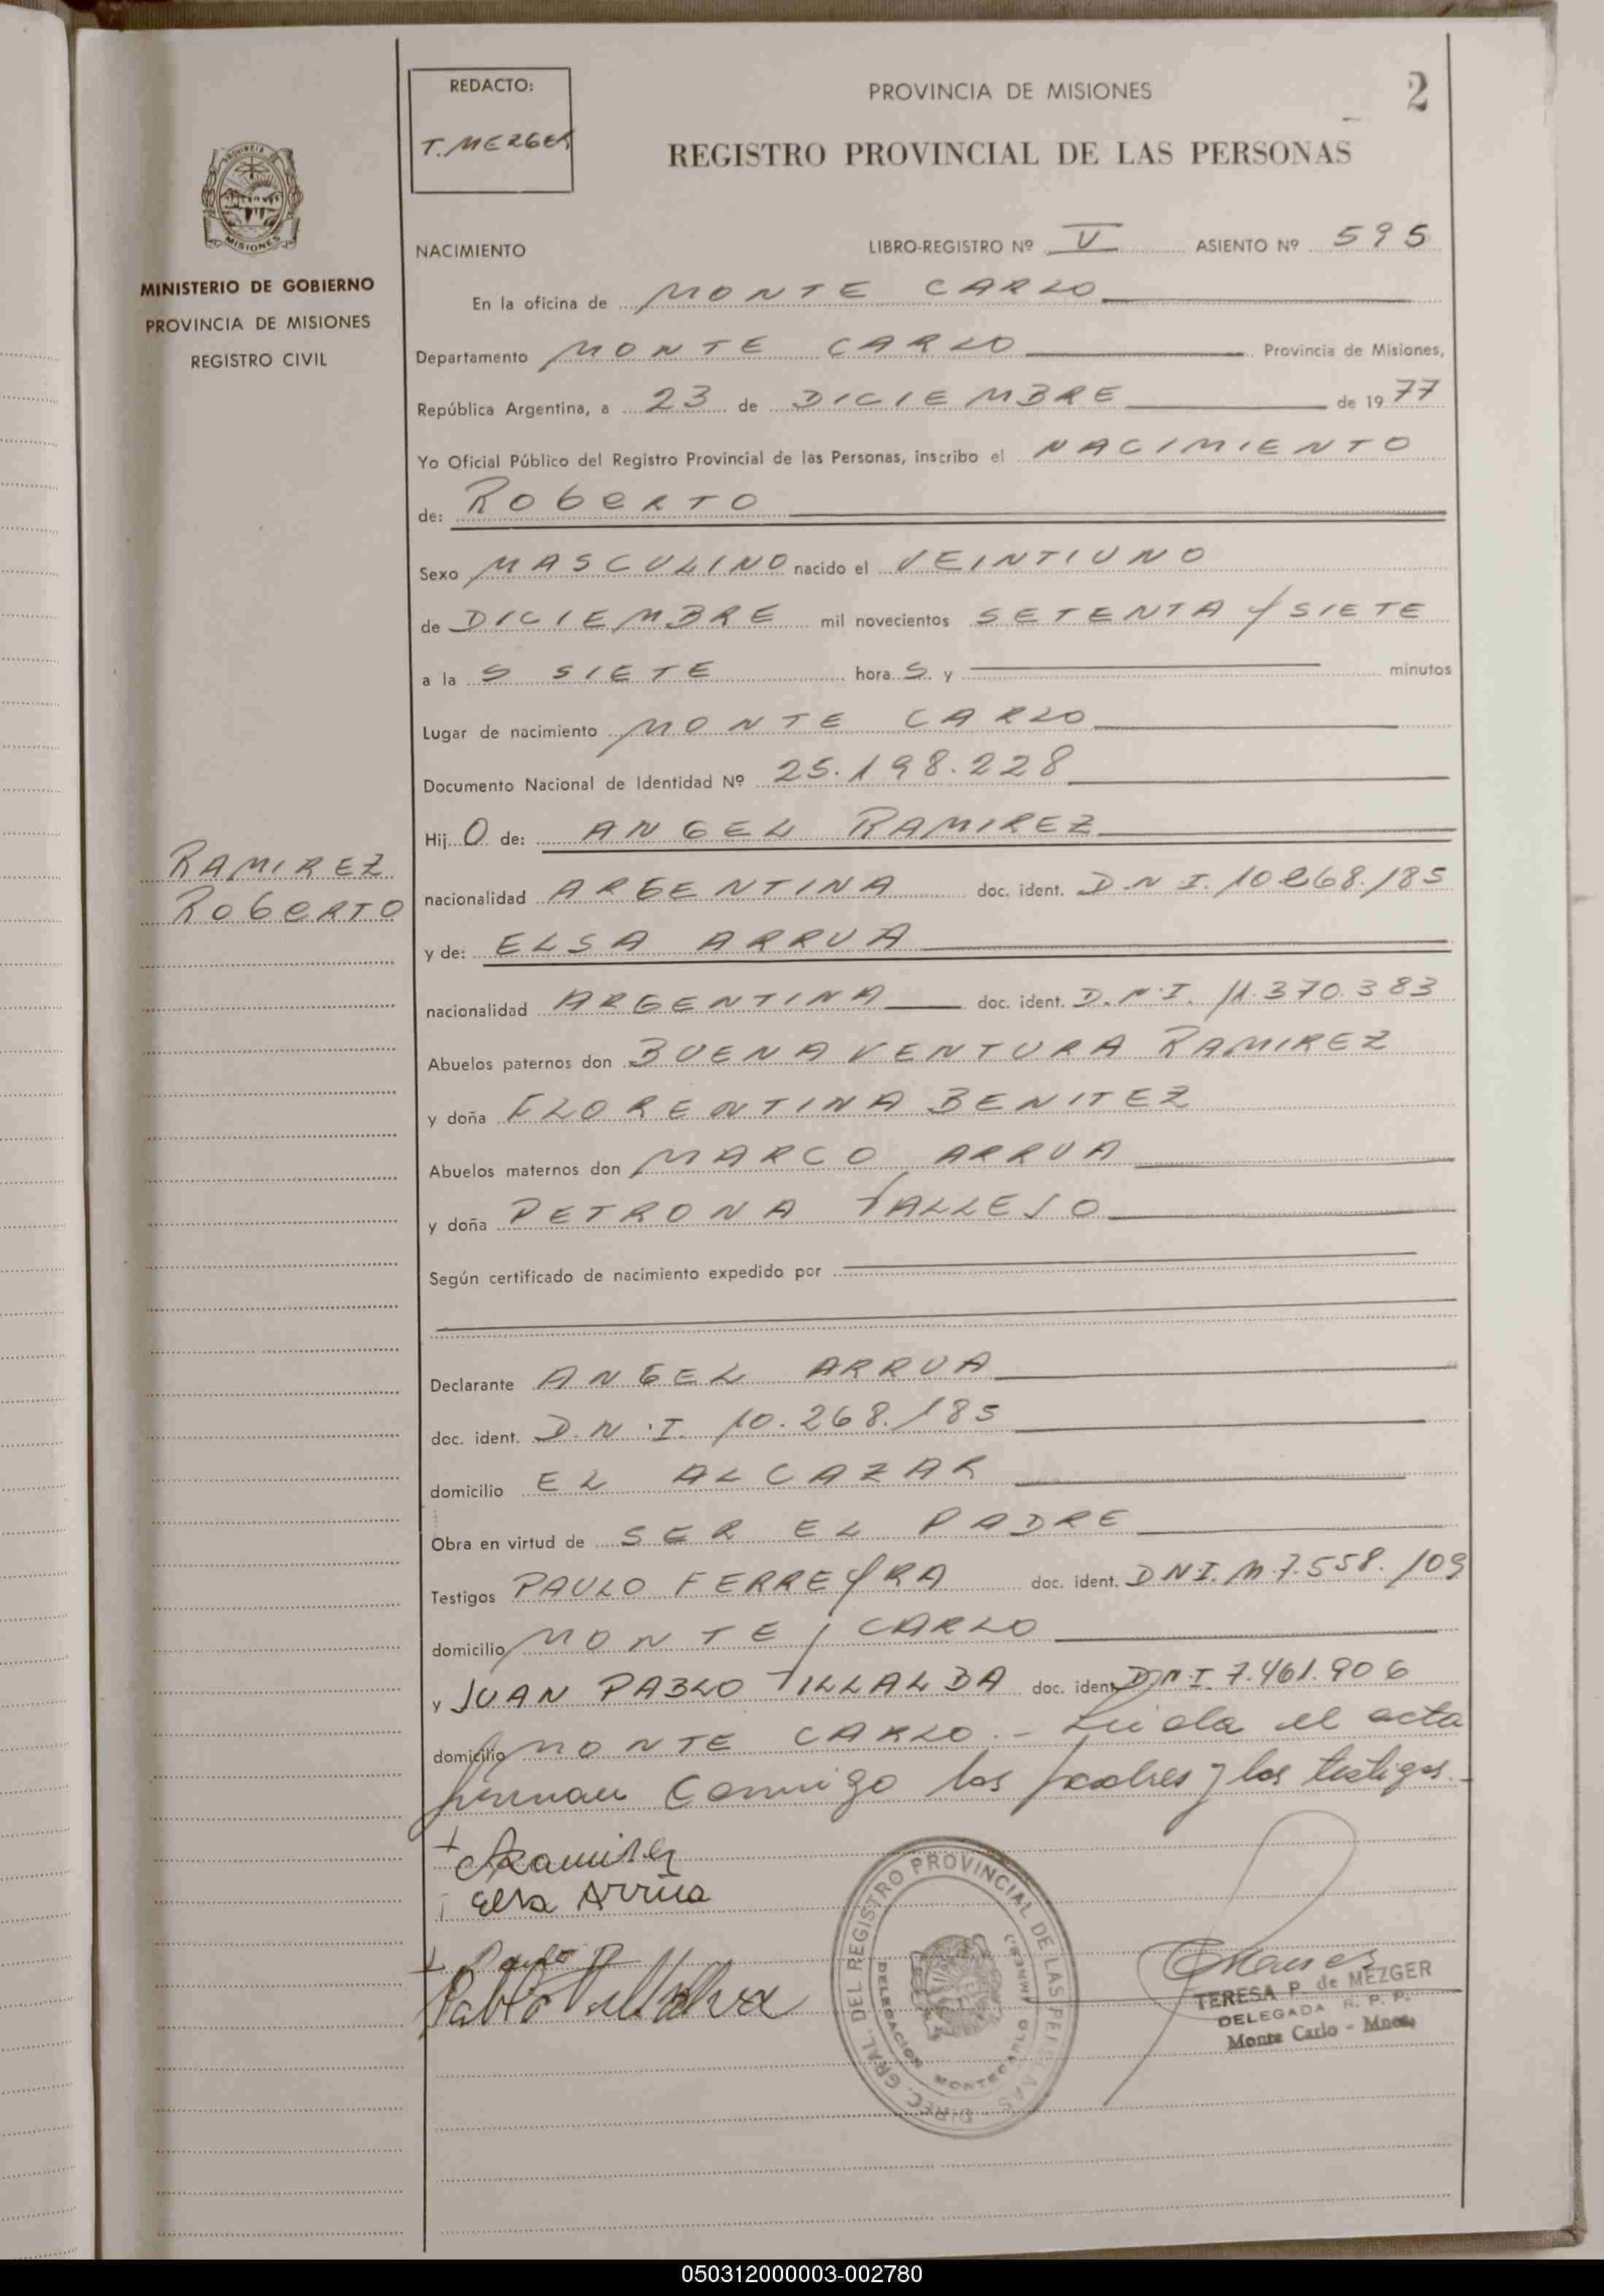 REDACTO:
T. MEZGER
PROVINCIA DE MISIONES
2
REGISTRO PROVINCIAL DE LAS PERSONAS
PROVINCIA DE
MISIONES
MINISTERIO DE GOBIERNO
PROVINCIA DE MISIONES
REGISTRO CIVIL
NACIMIENTO LIBRO-REGISTRO Nº V ASIENTO Nº 595
En la oficina de MONTE CARLO
Departamento MONTE CARLO Provincia de Misiones,
República Argentina, a 23 de DICIEMBRE de 1977
Yo Oficial Público del Registro Provincial de las Personas, inscribo el NACIMIENTO
de: ROBERTO
Sexo MASCULINO nacido el VEINTIUNO
de DICIEMBRE mil novecientos SETENTA Y SIETE
a la S SIETE hora S y minutos
Lugar de nacimiento MONTE CARLO
Documento Nacional de Identidad Nº 25.198.228
Hij O de: ANGEL RAMIREZ
RAMIREZ
ROBERTO
nacionalidad ARGENTINA doc. ident. D.N.I. 10.268.185
y de: ELSA ARRUA
nacionalidad ARGENTINA doc. ident. D.N.I. 11.370.383
Abuelos paternos don BUENAVENTURA RAMIREZ
y doña FLORENTINA BENITEZ
Abuelos maternos don MARCO ARRUA
y doña PETRONA VALLEJO
Según certificado de nacimiento expedido por
Declarante ANGEL ARRUA
doc. ident. D.N.I. 10.268.185
domicilio EL ALCAZAR
Obra en virtud de SER EL PADRE
Testigos PAULO FERREYRA doc. ident. DNI. M 7.558.109
domicilio MONTE CARLO
y JUAN PABLO VILLALBA doc. ident. D.N.I. 7.461.906
domicilio MONTE CARLO.- Leida el acta
firman conmigo los padres y los testigos.-
Ramirez
Elsa Arrúa
Pablo Villalva
DIREC. GRAL. DEL REGISTRO PROVINCIAL DE LAS PERSONAS
DELEGACION MONTECARLO
TERESA P. de MEZGER
DELEGADA R. P. P.
Monte Carlo - Mnes.
050312000003-002780